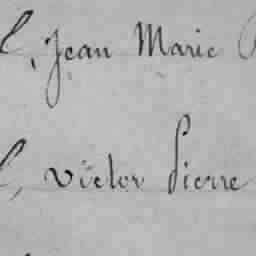 , Jean Marie
, Victor Pierre